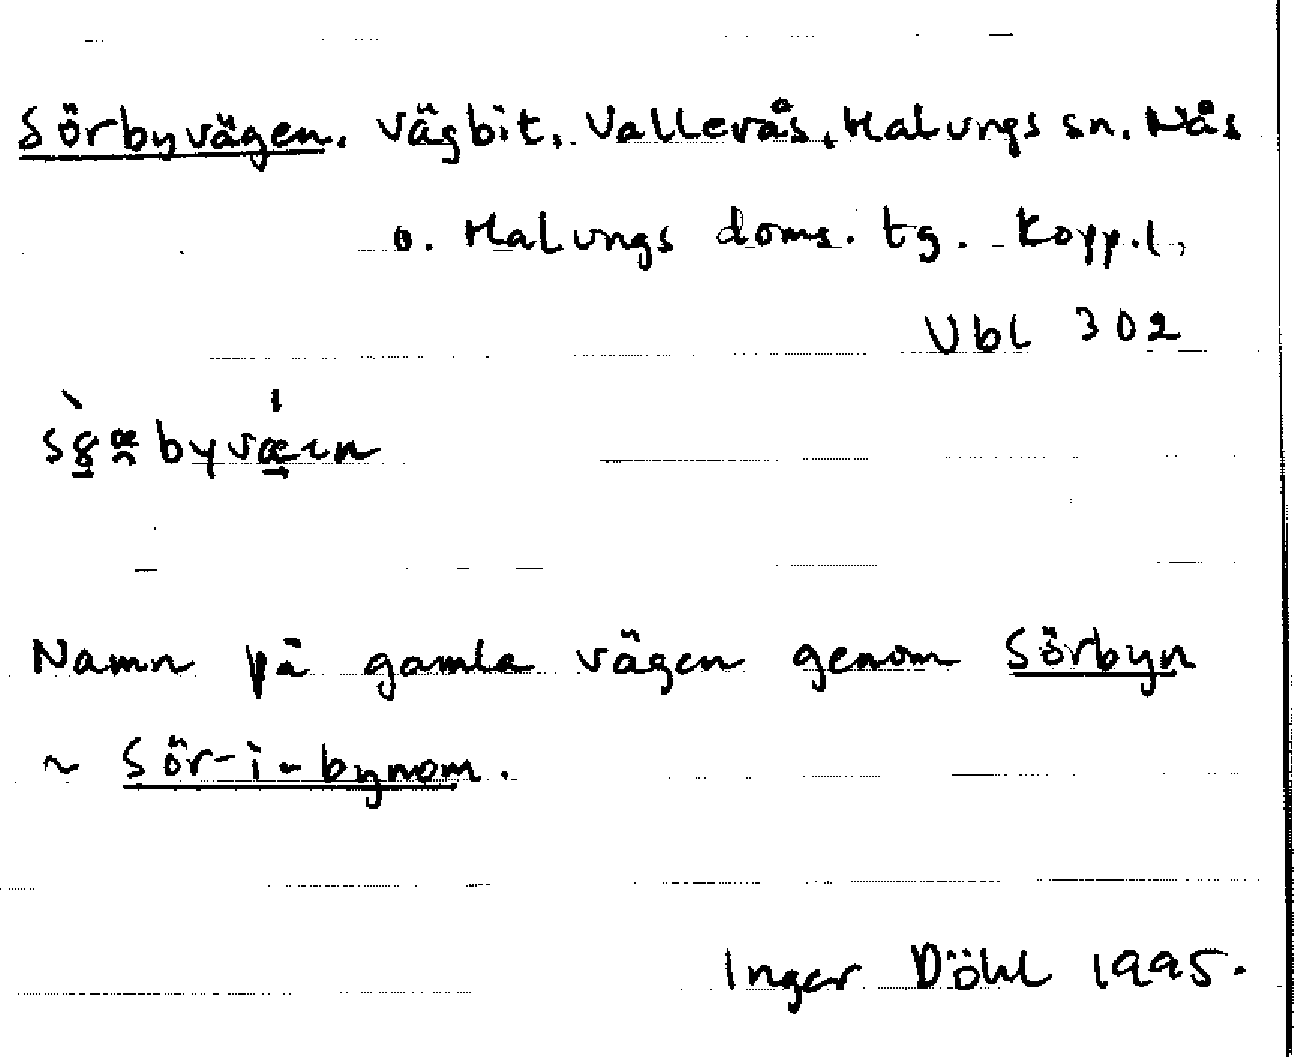 Sörbyvägen. Vägbit, Vallerås, Malungs sn. Nås
o. Malungs doms. tg. Kopp.l,
Ubl 302
Namn på gamla vägen genom Sörbyn
~ Sör-i-bynom.
Inger Döhl 1995.